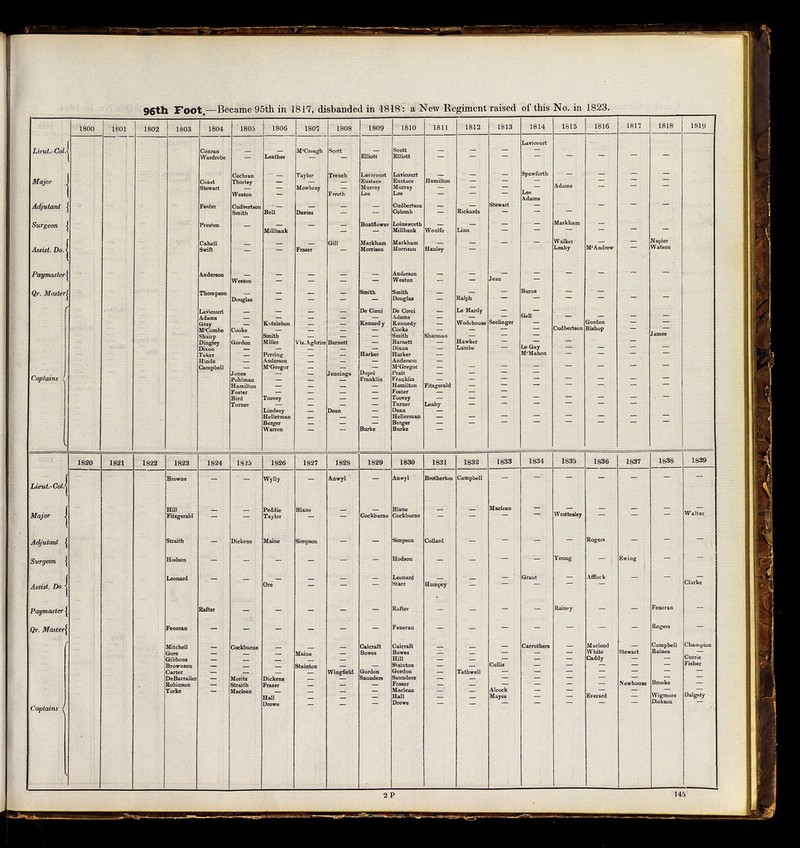 96th Foot.—Became 95th in 1817, disbanded in 1818: a New Regiment raised of this No. in 1823.
1800 1801 1802 1803 1804 1805 1806 1807 1808 1809 1810 1811 1812 1813 1814 1815 1816 1817 1818 1819
Lavicourt
Lieut.-Col. Conran — — McCreagh Scott — Scott — — — — — — — —
Wardrobe — Leathes — — Elliott Elliott — — — — — — — —
Cochran — Taylor Trench Lavicourt Lavicourt — — — Spawforth — — — —
Major Coast Thorley — — — Eustace Eustace Hamilton — — — — — — —
Stewart — — Mowbray — Murray Murray — — — — Adams — — —
Weston — — Freeth Lee Lee — — — Lee — — — —
Adams
Adjutant Foster Cudbertson — — — — Cudbertson — — Stewart — — — — —
Smith Bell Davies — — Colomb — Rickards — — —
Surgeon Preston — — — — Boatflower Loinsworth — — — — Markham — — —
Millbank — — — Millbank Woulfe Linn — — —
Assist. Do. Cahell — — — Gill Markham Markham — — — — Walker — — Napier
Swift — — Fraser — Morrison Morrison Hanley — — — Leahy McAndrew — Watson
Paymaster Anderson — — — — — Anderson — — Jean — — — — —
Weston — — — — Weston — — — — —
Qr. Master Thompson — — — — Smith Smith — — — Buros — — — —
Douglas — — — — Douglas — Ralph — — — — —
Captains Lavicourt — — — — De Corci De Corci — Le Hardy — — — — —
Adams — — — — — Adams — — — Gell — — — —
Gray — Kotzleben — — Kennedy Kennedy — Wodehouse Seelinger — — Gordon — —
McCombe Cooke — — — — Cooke — — — — Cudbertson Bishop — —
Shairp — Smith — — — Smith Shannan — — — — — — James
Dingley Gordon Miller Vis. Aghrim Barnett — Barnett — Hawker — — — — —
Dixon — — — — — Dixon — Lambe — Le Gay — — — —
Toker — Perring — — Harker Harker — — — McMahon — — — —
Hinde — Anderson — — — Anderson — — — — — — —
Campbell — McGregor — — — McGregor — — — — — — —
Jones — — Jennings Dupré Pratt — — — — — — —
Pohlman — — — Franklin Franklin — — — — — — —
Hamilton — — — — Hamilton Fitzgerald — — — — — —
Foster — — — — Foster —
Bird Toovey — — — Toovey —
Turner — — — — Turner Leahy
Lindsay — Dean — Dean —
Hellerman — — — Hellerman —
Berger — — — Berger —
Warren — — Burke Burke —
1820 1821 1822 1823 1824 1825 1826 1827 1828 1829 1830 1831 1832 1833 1834 1835 1836 1837 1838 1839
Lieut.-Col. Browne — — Wylly — Anwyl — Anwyl Brotherton Campbell — — — — — — —
Major Hill — — Peddie Blane — — Blane — — Maclean — — — — — —
Fitzgerald — — Taylor — — Cockburne Cockburne — — — — Wrottesley — — — Walter
Adjutant Straith — Dickens Maine Simpson — — Simpson Collard — — — — Rogers — — —
Surgeon Hodson — — — — — — Hodson — — — — Young — Ewing — —
Assist. Do. Leonard — — — — — — Leonard — — — Grant — Affleck — — —
Ore — — — Starr Humpey — — — — — Clarke
Paymaster Rafter — — — — — Rafter — — — — Rainey — — Feneran —
Qr. Master Feneran — — — — — — Feneran — — — — — — — Rogers —
Captains Mitchell — Cockburne — — — Calcraft Calcraft — — — Carruthers — Macleod — Campbell Champion
Gore — — — Maine — Bowes Bowes — — — — — White Stewart Raines —
Gibbons — — — — — — Hill — — — — — Caddy — — Currie
Brownson — — — Stainton — — Stainton — — Collis — — — — — Fisher
Carter — — — — Wingfield Gordon Gordon — Tathwell — — — — — —
DeBarralier — Moritz Dickens — — Saunders Saunders — — — — — — — —
Robinson — Straith Fraser — — — Fraser — — — — — — Newhouse Brooke —
Yorke — Maclean — — — — Maclean — — Alcock — — — — — —
Hall — — — Hall — — Mayes — — Everard — Wigmore Dalgety
Drewe — — — Drewe — — — — — — — Dickson —
2 P
145